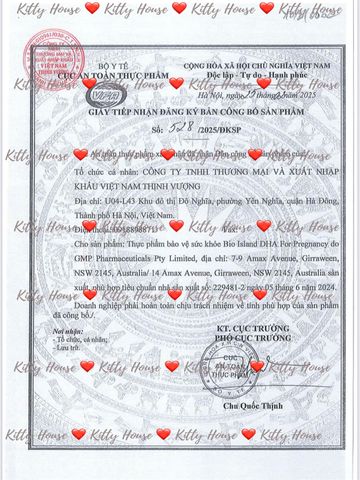 BỘ Y TẾ
CỤC AN TOÀN THỰC PHẨM
CỘNG HÒA XÃ HỘI CHỦ NGHĨA VIỆT NAM
Độc lập - Tự do - Hạnh phúc
Hà Nội, ngày
2025
GIẤY TIẾP NHẬN ĐĂNG KÝ BẢN CÔNG BỐ SẢN PHẨM
Số: 528 /2025/ĐKSP
Kitty House ❤ Kitty House ❤ Kitty House
Tổ chức cá nhân: CÔNG TY TNHH THƯƠNG MẠI VÀ XUẤT NHẬP
KHẨU VIỆT NAM THỊNH VƯỢNG
Địa chỉ: U04-L43 Khu đô thị Đô Nghĩa, phường Yên Nghĩa, quận Hà Đông,
Thành phố Hà Nội, Việt Nam.
Điện thoại:
Fax:
Cho sản phẩm: Thực phẩm bảo vệ sức khỏe Bio Island DHA For Pregnancy do
GMP Pharmaceuticals Pty Limited, địa chỉ: 7-9 Amax Avenue, Girraween,
NSW 2145, Australia/ 14 Amax Avenue, Girraween, NSW 2145, Australia sản
xuất, phù hợp tiêu chuẩn nhà sản xuất số: 229481-2 ngày 05 tháng 6 năm 2024.
Doanh nghiệp phải hoàn toàn chịu trách nhiệm về tính phù hợp của sản phẩm
đã công bố./.
Nơi nhận:
- Tổ chức, cá nhân;
- Lưu trữ.
KT. CỤC TRƯỞNG
PHÓ CỤC TRƯỞNG
CỤC
AN TOÀN
THỰC PHẨM
Chu Quốc Thịnh
Kitty House ❤ Kitty House ❤ Kitty House